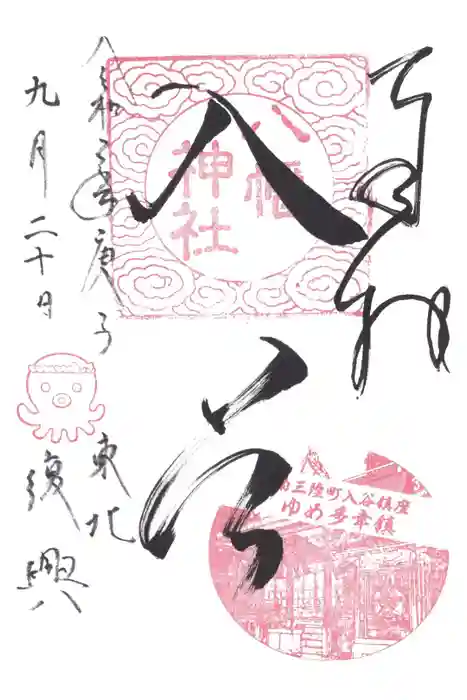 奉拝
入谷
八幡
神社
南三陸町入谷鎮座
ゆめ多幸鎮
令和二年庚子
九月二十日
東北
復興